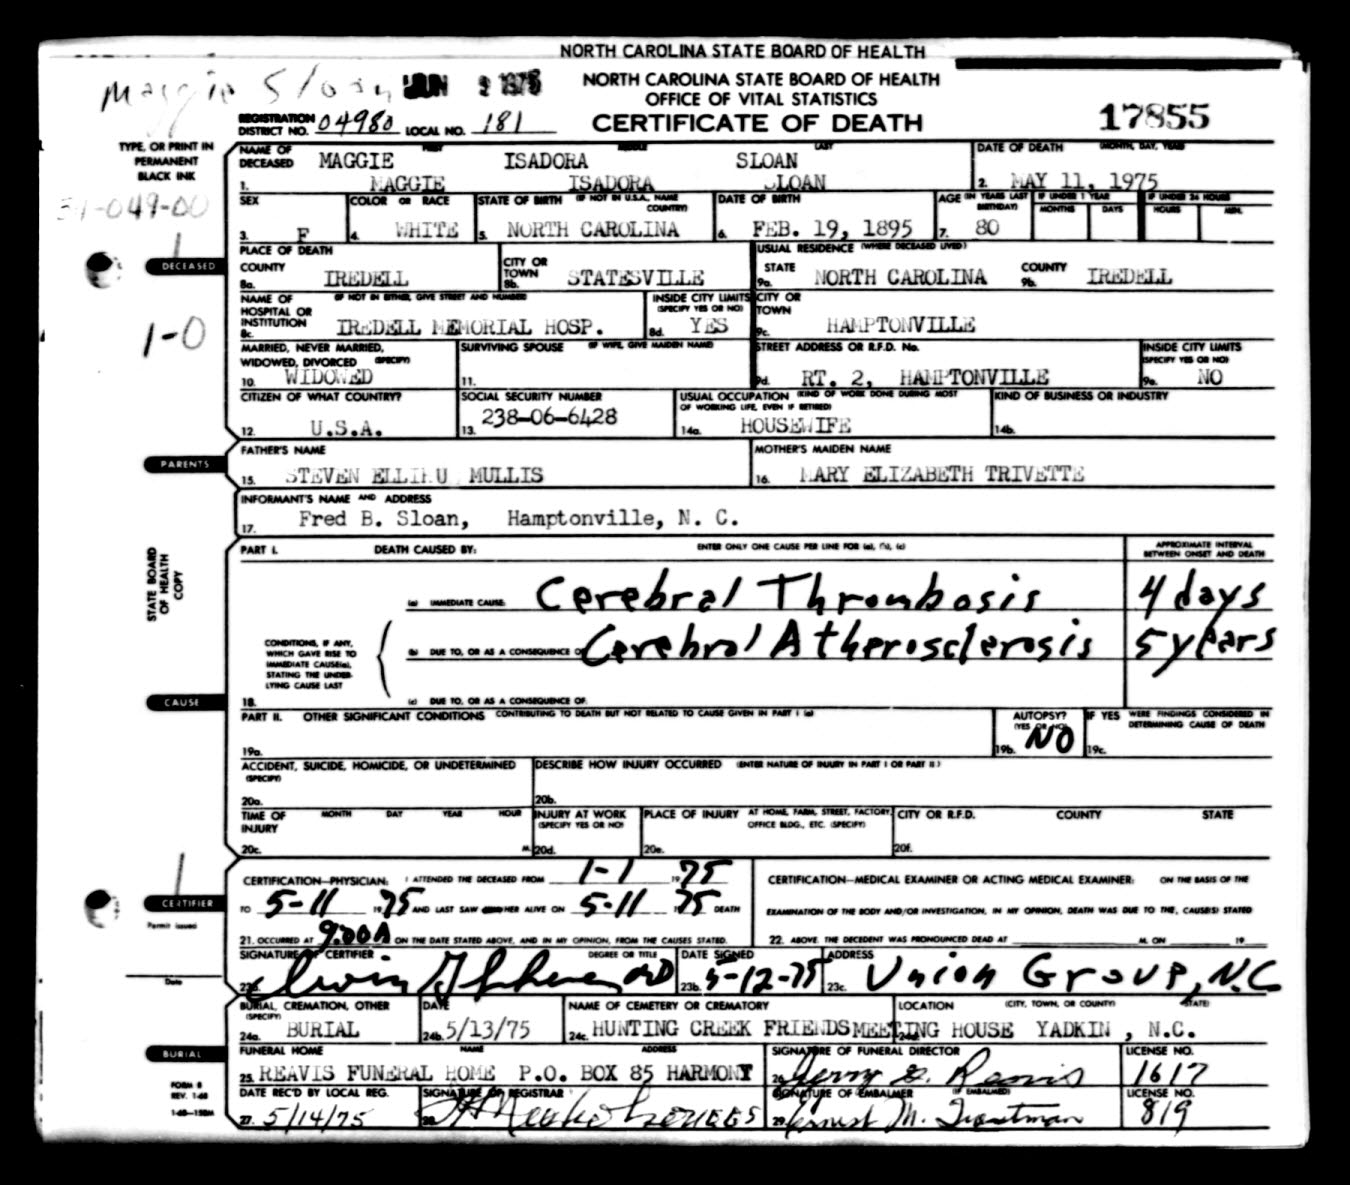 NORTH CAROLINA STATE BOARD OF HEALTH
Maggie Sloan JUN 2 1975 NORTH CAROLINA STATE BOARD OF HEALTH
OFFICE OF VITAL STATISTICS
REGISTRATION DISTRICT NO. 04980 LOCAL NO. 181 CERTIFICATE OF DEATH 17855
TYPE, OR PRINT IN
PERMANENT
BLACK INK
NAME OF DECEASED FIRST MIDDLE LAST DATE OF DEATH (MONTH, DAY, YEAR)
MAGGIE ISADORA SLOAN
1. MAGGIE ISADORA SLOAN 2. MAY 11, 1975
34-049-00
SEX COLOR OR RACE STATE OF BIRTH (IF NOT IN U.S.A., NAME COUNTRY) DATE OF BIRTH AGE (IN YEARS LAST BIRTHDAY) IF UNDER 1 YEAR MONTHS DAYS IF UNDER 24 HOURS HOURS MIN.
3. F 4. WHITE 5. NORTH CAROLINA 6. FEB. 19, 1895 7. 80
DECEASED
PLACE OF DEATH USUAL RESIDENCE (WHERE DECEASED LIVED)
COUNTY CITY OR TOWN STATE COUNTY
8a. IREDELL 8b. STATESVILLE 9a. NORTH CAROLINA 9b. IREDELL
NAME OF HOSPITAL OR INSTITUTION (IF NOT IN EITHER, GIVE STREET AND NUMBER) INSIDE CITY LIMITS (SPECIFY YES OR NO) CITY OR TOWN
8c. IREDELL MEMORIAL HOSP. 8d. YES 9c. HAMPTONVILLE
1-0
MARRIED, NEVER MARRIED, WIDOWED, DIVORCED (SPECIFY) SURVIVING SPOUSE (IF WIFE, GIVE MAIDEN NAME) STREET ADDRESS OR R.F.D. No. INSIDE CITY LIMITS (SPECIFY YES OR NO)
10. WIDOWED 11. 9d. RT. 2, HAMPTONVILLE 9e. NO
CITIZEN OF WHAT COUNTRY? SOCIAL SECURITY NUMBER USUAL OCCUPATION (KIND OF WORK DONE DURING MOST OF WORKING LIFE, EVEN IF RETIRED) KIND OF BUSINESS OR INDUSTRY
12. U.S.A. 13. 238-06-6428 14a. HOUSEWIFE 14b.
PARENTS
FATHER'S NAME MOTHER'S MAIDEN NAME
15. STEVEN ELLIHU MULLIS 16. MARY ELIZABETH TRIVETTE
INFORMANT'S NAME AND ADDRESS
17. Fred B. Sloan, Hamptonville, N. C.
STATE BOARD
OF HEALTH
COPY
PART I. DEATH CAUSED BY: ENTER ONLY ONE CAUSE PER LINE FOR (a), (b), (c) APPROXIMATE INTERVAL BETWEEN ONSET AND DEATH
(a) IMMEDIATE CAUSE: Cerebral Thrombosis 4 days
CONDITIONS, IF ANY, WHICH GAVE RISE TO IMMEDIATE CAUSE(a), STATING THE UNDER-LYING CAUSE LAST
(b) DUE TO, OR AS A CONSEQUENCE OF Cerebral Atherosclerosis 5 years
CAUSE
18. (c) DUE TO, OR AS A CONSEQUENCE OF:
PART II. OTHER SIGNIFICANT CONDITIONS CONTRIBUTING TO DEATH BUT NOT RELATED TO CAUSE GIVEN IN PART I (a) AUTOPSY? (YES OR NO) IF YES WERE FINDINGS CONSIDERED IN DETERMINING CAUSE OF DEATH
19a. 19b. NO 19c.
ACCIDENT, SUICIDE, HOMICIDE, OR UNDETERMINED (SPECIFY) DESCRIBE HOW INJURY OCCURRED (ENTER NATURE OF INJURY IN PART I OR PART II)
20a. 20b.
TIME OF INJURY MONTH DAY YEAR HOUR INJURY AT WORK (SPECIFY YES OR NO) PLACE OF INJURY AT HOME, FARM, STREET, FACTORY, OFFICE BLDG., ETC. (SPECIFY) CITY OR R.F.D. COUNTY STATE
20c. M. 20d. 20e. 20f.
CERTIFICATION—PHYSICIAN: I ATTENDED THE DECEASED FROM 1-1 1975 CERTIFICATION—MEDICAL EXAMINER OR ACTING MEDICAL EXAMINER: ON THE BASIS OF THE
CERTIFIER
TO 5-11 1975 AND LAST SAW HER ALIVE ON 5-11 1975 DEATH EXAMINATION OF THE BODY AND/OR INVESTIGATION, IN MY OPINION, DEATH WAS DUE TO THE, CAUSE(S) STATED
Permit issued
21. OCCURRED AT 9:00A ON THE DATE STATED ABOVE, AND IN MY OPINION, FROM THE CAUSES STATED. 22. ABOVE. THE DECEDENT WAS PRONOUNCED DEAD AT M. ON 19
SIGNATURE OF CERTIFIER DEGREE OR TITLE DATE SIGNED ADDRESS
23a. MD 23b. 5-12-75 23c. Union Grove, N.C
Date
BURIAL, CREMATION, OTHER (SPECIFY) DATE NAME OF CEMETERY OR CREMATORY LOCATION (CITY, TOWN, OR COUNTY) (STATE)
24a. BURIAL 24b. 5/13/75 24c. HUNTING CREEK FRIENDS MEETING HOUSE 24d. YADKIN, N.C.
BURIAL
FUNERAL HOME NAME ADDRESS SIGNATURE OF FUNERAL DIRECTOR LICENSE NO.
25. REAVIS FUNERAL HOME P.O. BOX 85 HARMONY 26. Jerry G. Reavis 1617
FORM 8
REV. 1-68
1-68—150M
DATE REC'D BY LOCAL REG. SIGNATURE OF REGISTRAR SIGNATURE OF EMBALMER (IF EMBALMED) LICENSE NO.
27. 5/14/75 28. 29. Ernest M. Troutman 819